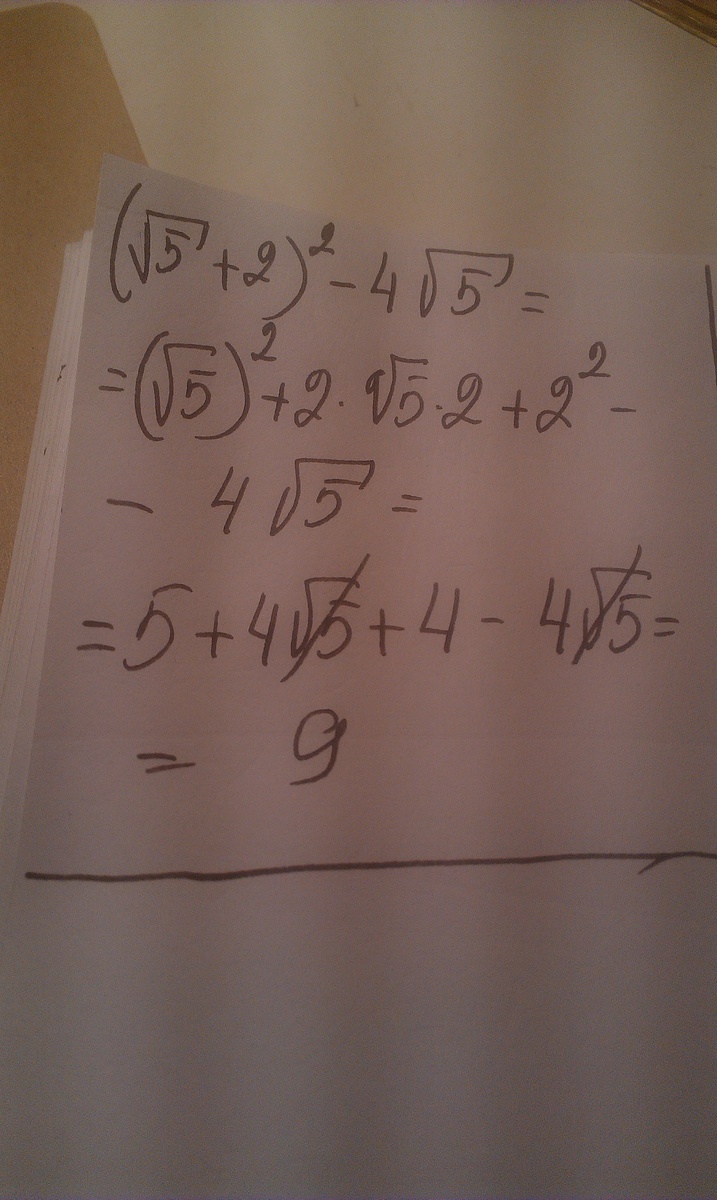 (√5 + 2)² - 4√5 =
= (√5)² + 2 · √5 · 2 + 2² -
- 4√5 =
= 5 + 4√5 + 4 - 4√5 =
= 9